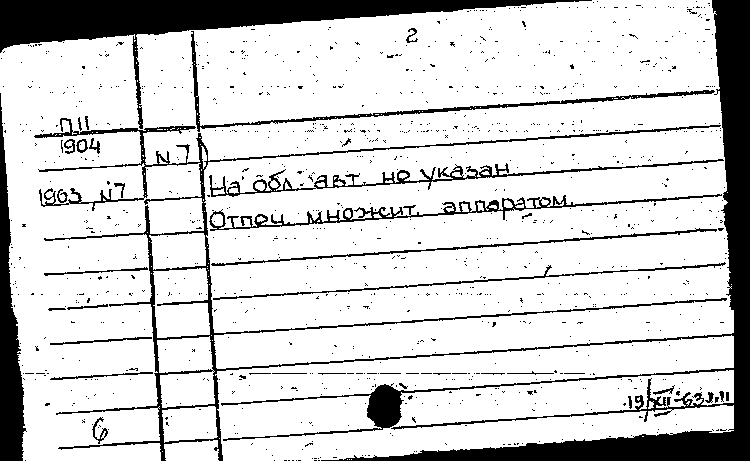 2
П.11
1904
N 7)
1963, N7
На обл. авт. не указан
Отпеч. множит. аппаратом.
19/XII-63
6